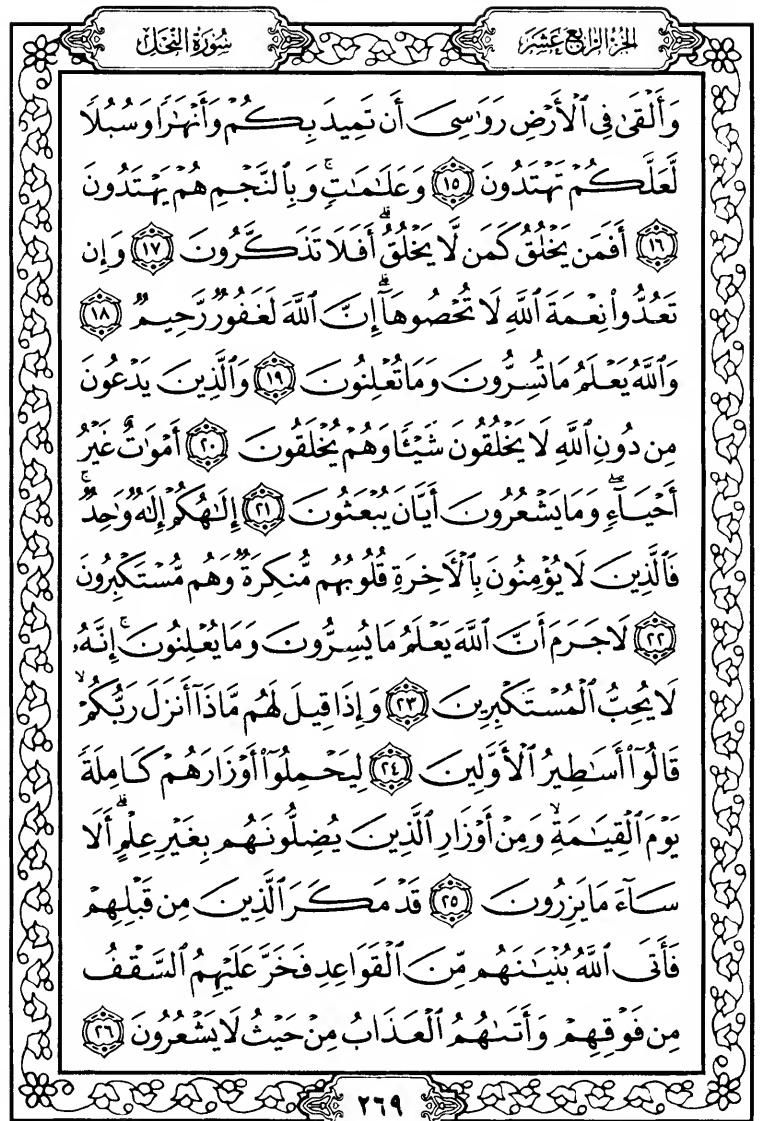 الجزء الرابع عشر
سورة النحل
وَأَلْقَىٰ فِى ٱلْأَرْضِ رَوَٰسِىَ أَن تَمِيدَ بِكُمْ وَأَنْهَٰرًا وَسُبُلًا
لَّعَلَّكُمْ تَهْتَدُونَ ١٥ وَعَلَٰمَٰتٍۚ وَبِٱلنَّجْمِ هُمْ يَهْتَدُونَ
١٦ أَفَمَن يَخْلُقُ كَمَن لَّا يَخْلُقُۗ أَفَلَا تَذَكَّرُونَ ١٧ وَإِن
تَعُدُّوا۟ نِعْمَةَ ٱللَّهِ لَا تُحْصُوهَآۗ إِنَّ ٱللَّهَ لَغَفُورٌ رَّحِيمٌ ١٨
وَٱللَّهُ يَعْلَمُ مَا تُسِرُّونَ وَمَا تُعْلِنُونَ ١٩ وَٱلَّذِينَ يَدْعُونَ
مِن دُونِ ٱللَّهِ لَا يَخْلُقُونَ شَيْـًٔا وَهُمْ يُخْلَقُونَ ٢٠ أَمْوَٰتٌ غَيْرُ
أَحْيَآءٍۖ وَمَا يَشْعُرُونَ أَيَّانَ يُبْعَثُونَ ٢١ إِلَٰهُكُمْ إِلَٰهٌ وَٰحِدٌۚ
فَٱلَّذِينَ لَا يُؤْمِنُونَ بِٱلْأَخِرَةِ قُلُوبُهُم مُّنكِرَةٌ وَهُم مُّسْتَكْبِرُونَ
٢٢ لَا جَرَمَ أَنَّ ٱللَّهَ يَعْلَمُ مَا يُسِرُّونَ وَمَا يُعْلِنُونَۚ إِنَّهُۥ
لَا يُحِبُّ ٱلْمُسْتَكْبِرِينَ ٢٣ وَإِذَا قِيلَ لَهُم مَّاذَآ أَنزَلَ رَبُّكُمْۙ
قَالُوٓا۟ أَسَٰطِيرُ ٱلْأَوَّلِينَ ٢٤ لِيَحْمِلُوٓا۟ أَوْزَارَهُمْ كَامِلَةً
يَوْمَ ٱلْقِيَٰمَةِۙ وَمِنْ أَوْزَارِ ٱلَّذِينَ يُضِلُّونَهُم بِغَيْرِ عِلْمٍۗ أَلَا
سَآءَ مَا يَزِرُونَ ٢٥ قَدْ مَكَرَ ٱلَّذِينَ مِن قَبْلِهِمْ
فَأَتَى ٱللَّهُ بُنْيَٰنَهُم مِّنَ ٱلْقَوَاعِدِ فَخَرَّ عَلَيْهِمُ ٱلسَّقْفُ
مِن فَوْقِهِمْ وَأَتَىٰهُمُ ٱلْعَذَابُ مِنْ حَيْثُ لَا يَشْعُرُونَ ٢٦
٢٦٩